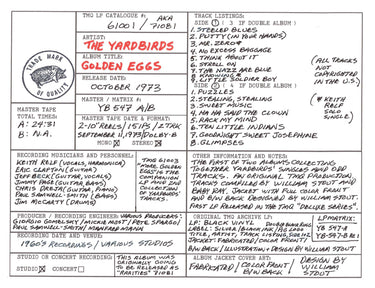 TMQ LP CATALOGUE #: AKA
61001 / 71081
ARTIST:
THE YARDBIRDS
ALBUM TITLE:
GOLDEN EGGS
RELEASE DATE:
OCTOBER 1973
TRADE MARK
OF QUALITY
MASTER / MATRIX #:
YB 547 A/B
MASTER TAPE
TOTAL TIMES:
A: 24:31
B: N.A.
MASTER TAPE DATE & FORMAT:
2-10" REELS / 15 IPS / 2 TRK
SEPTEMBER 11, 1973 / DOLBY-B
MONO STEREO
TRACK LISTINGS:
SIDE 1 ( 3 IF DOUBLE ALBUM )
1. STEELED BLUES
2. PUTTY (IN YOUR HANDS)
3. MR. ZERO #
4. NO EXCESS BAGGAGE
5. THINK ABOUT IT
6. STROLL ON
7. THE NAZZ ARE BLUE
8. KNOWING #
9. LITTLE SOLDIER BOY
SIDE 2 ( 4 IF DOUBLE ALBUM )
1. PUZZLES
2. STEALING, STEALING
3. SWEET MUSIC
4. HA HA SAID THE CLOWN
5. RACK MY MIND
6. TEN LITTLE INDIANS
7. GOODNIGHT SWEET JOSEPHINE
8. GLIMPSES
(ALL TRACKS
NOT
COPYRIGHTED
IN THE U.S.)
(# KEITH
RELF
SOLO
SINGLE)
RECORDING MUSICIANS AND PERSONNEL:
KEITH RELF (VOCALS, HARMONICA)
ERIC CLAPTON (GUITAR)
JEFF BECK (GUITAR, VOCALS)
JIMMY PAGE (GUITAR, BASS)
CHRIS DREJA (GUITAR, PIANO)
PAUL SAMWELL-SMITH (BASS)
JIM McCARTY (DRUMS)
THIS 61003
"MORE GOLDEN
EGGS" IS THE
SECOND
YARDBIRDS' TRACKS.
PRODUCER / RECORDING ENGINEER: VARIOUS PRODUCERS:
GIORGIO GOMELSKY / MICKIE MOST / PETE SPARGO/
PAUL SAMWELL-SMITH / MANFRED MANN
RECORDING DATE AND VENUE:
1960'S RECORDINGS / VARIOUS STUDIOS
STUDIO OR CONCERT RECORDING:
STUDIO CONCERT
THIS ALBUM WAS
ORIGINALLY GOING
TO BE RELEASED AS
"RARITIES" 71081
OTHER INFORMATION AND NOTES:
THE FIRST OF TWO ALBUMS COLLECTING
TOGETHER YARDBIRDS' SINGLES AND ODD
TRACKS. AN ORIGINAL TMQ PRODUCTION.
TRACKS COMPILED BY WILLIAM STOUT AND
JACKET WITH FULL COLOR FRONT
AND B/W BACK DESIGNED BY WILLIAM STOUT.
FIRST LP RELEASED IN THE TMQ "DELUXE SERIES".
ORIGINAL TMQ ARCHIVE LP:
LP: BLACK VINYL
LABEL: SILVER / BLACK INK /
TITLE, ARTIST, TRACK LISTING, SIDE 1/2
JACKET: FABRICATED / COLOR FRONT/
B/W BACK / ILLUSTRATION & DESIGN BY WILLIAM STOUT
LP MATRIX:
YB 547-A
YB 547-B RE 1
ALBUM JACKET COVER ART:
FABRICATED / COLOR FRONT/
B/W BACK
DESIGN BY
WILLIAM
STOUT